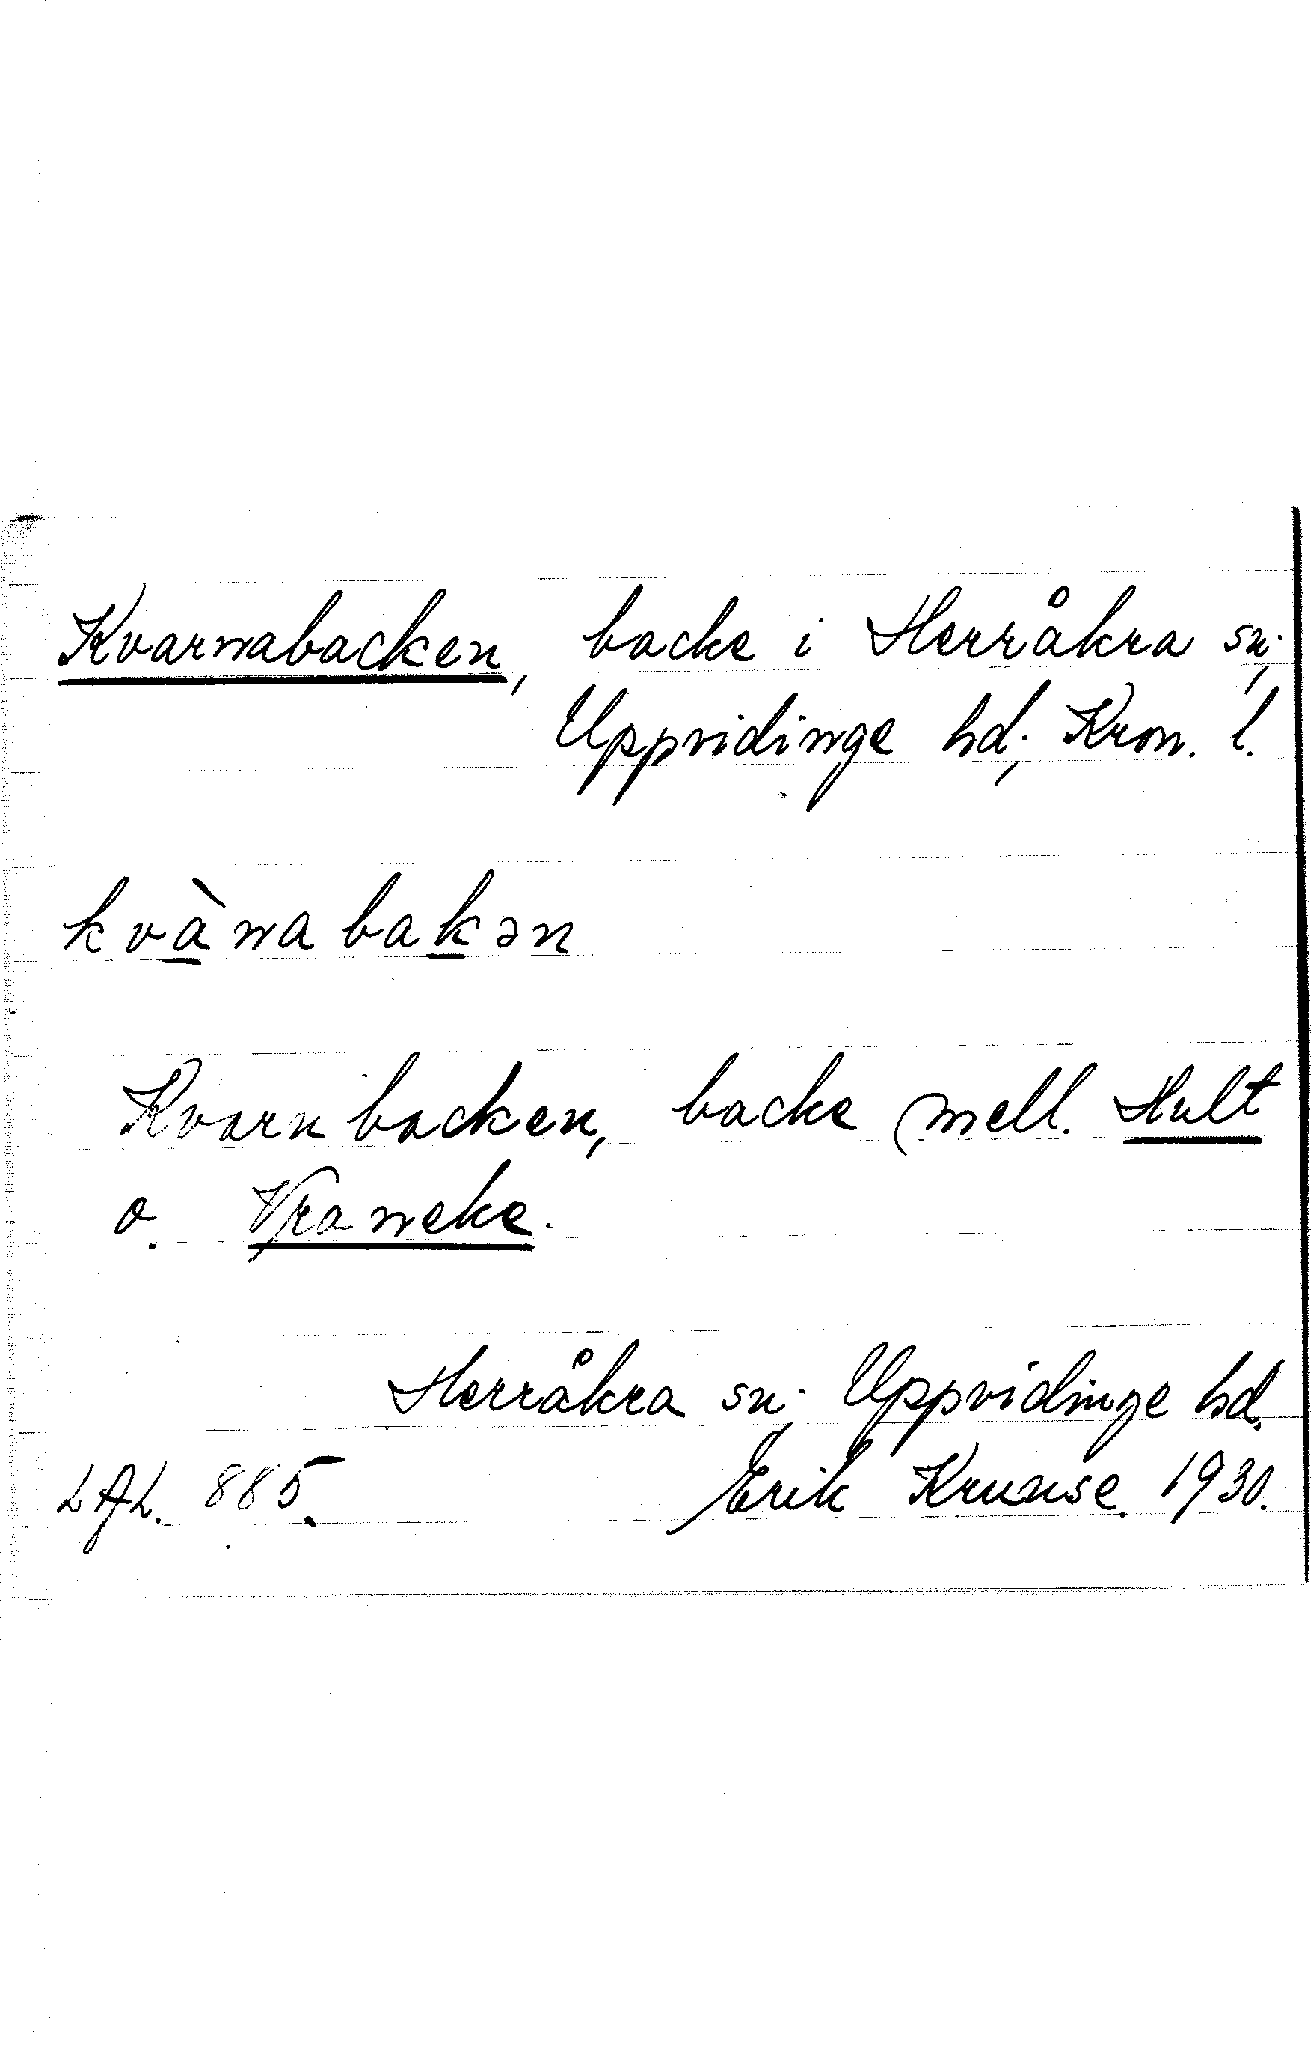 Kvarnabacken, backe i Herråkra sn.,
Uppvidinge hd., Kron. l.
kvànabakən
Kvarnbacken, backe mell. Hult
o. Vraneke.
Herråkra sn. Uppvidinge hd.
LAL. 885. Erik Kruuse. 1930.